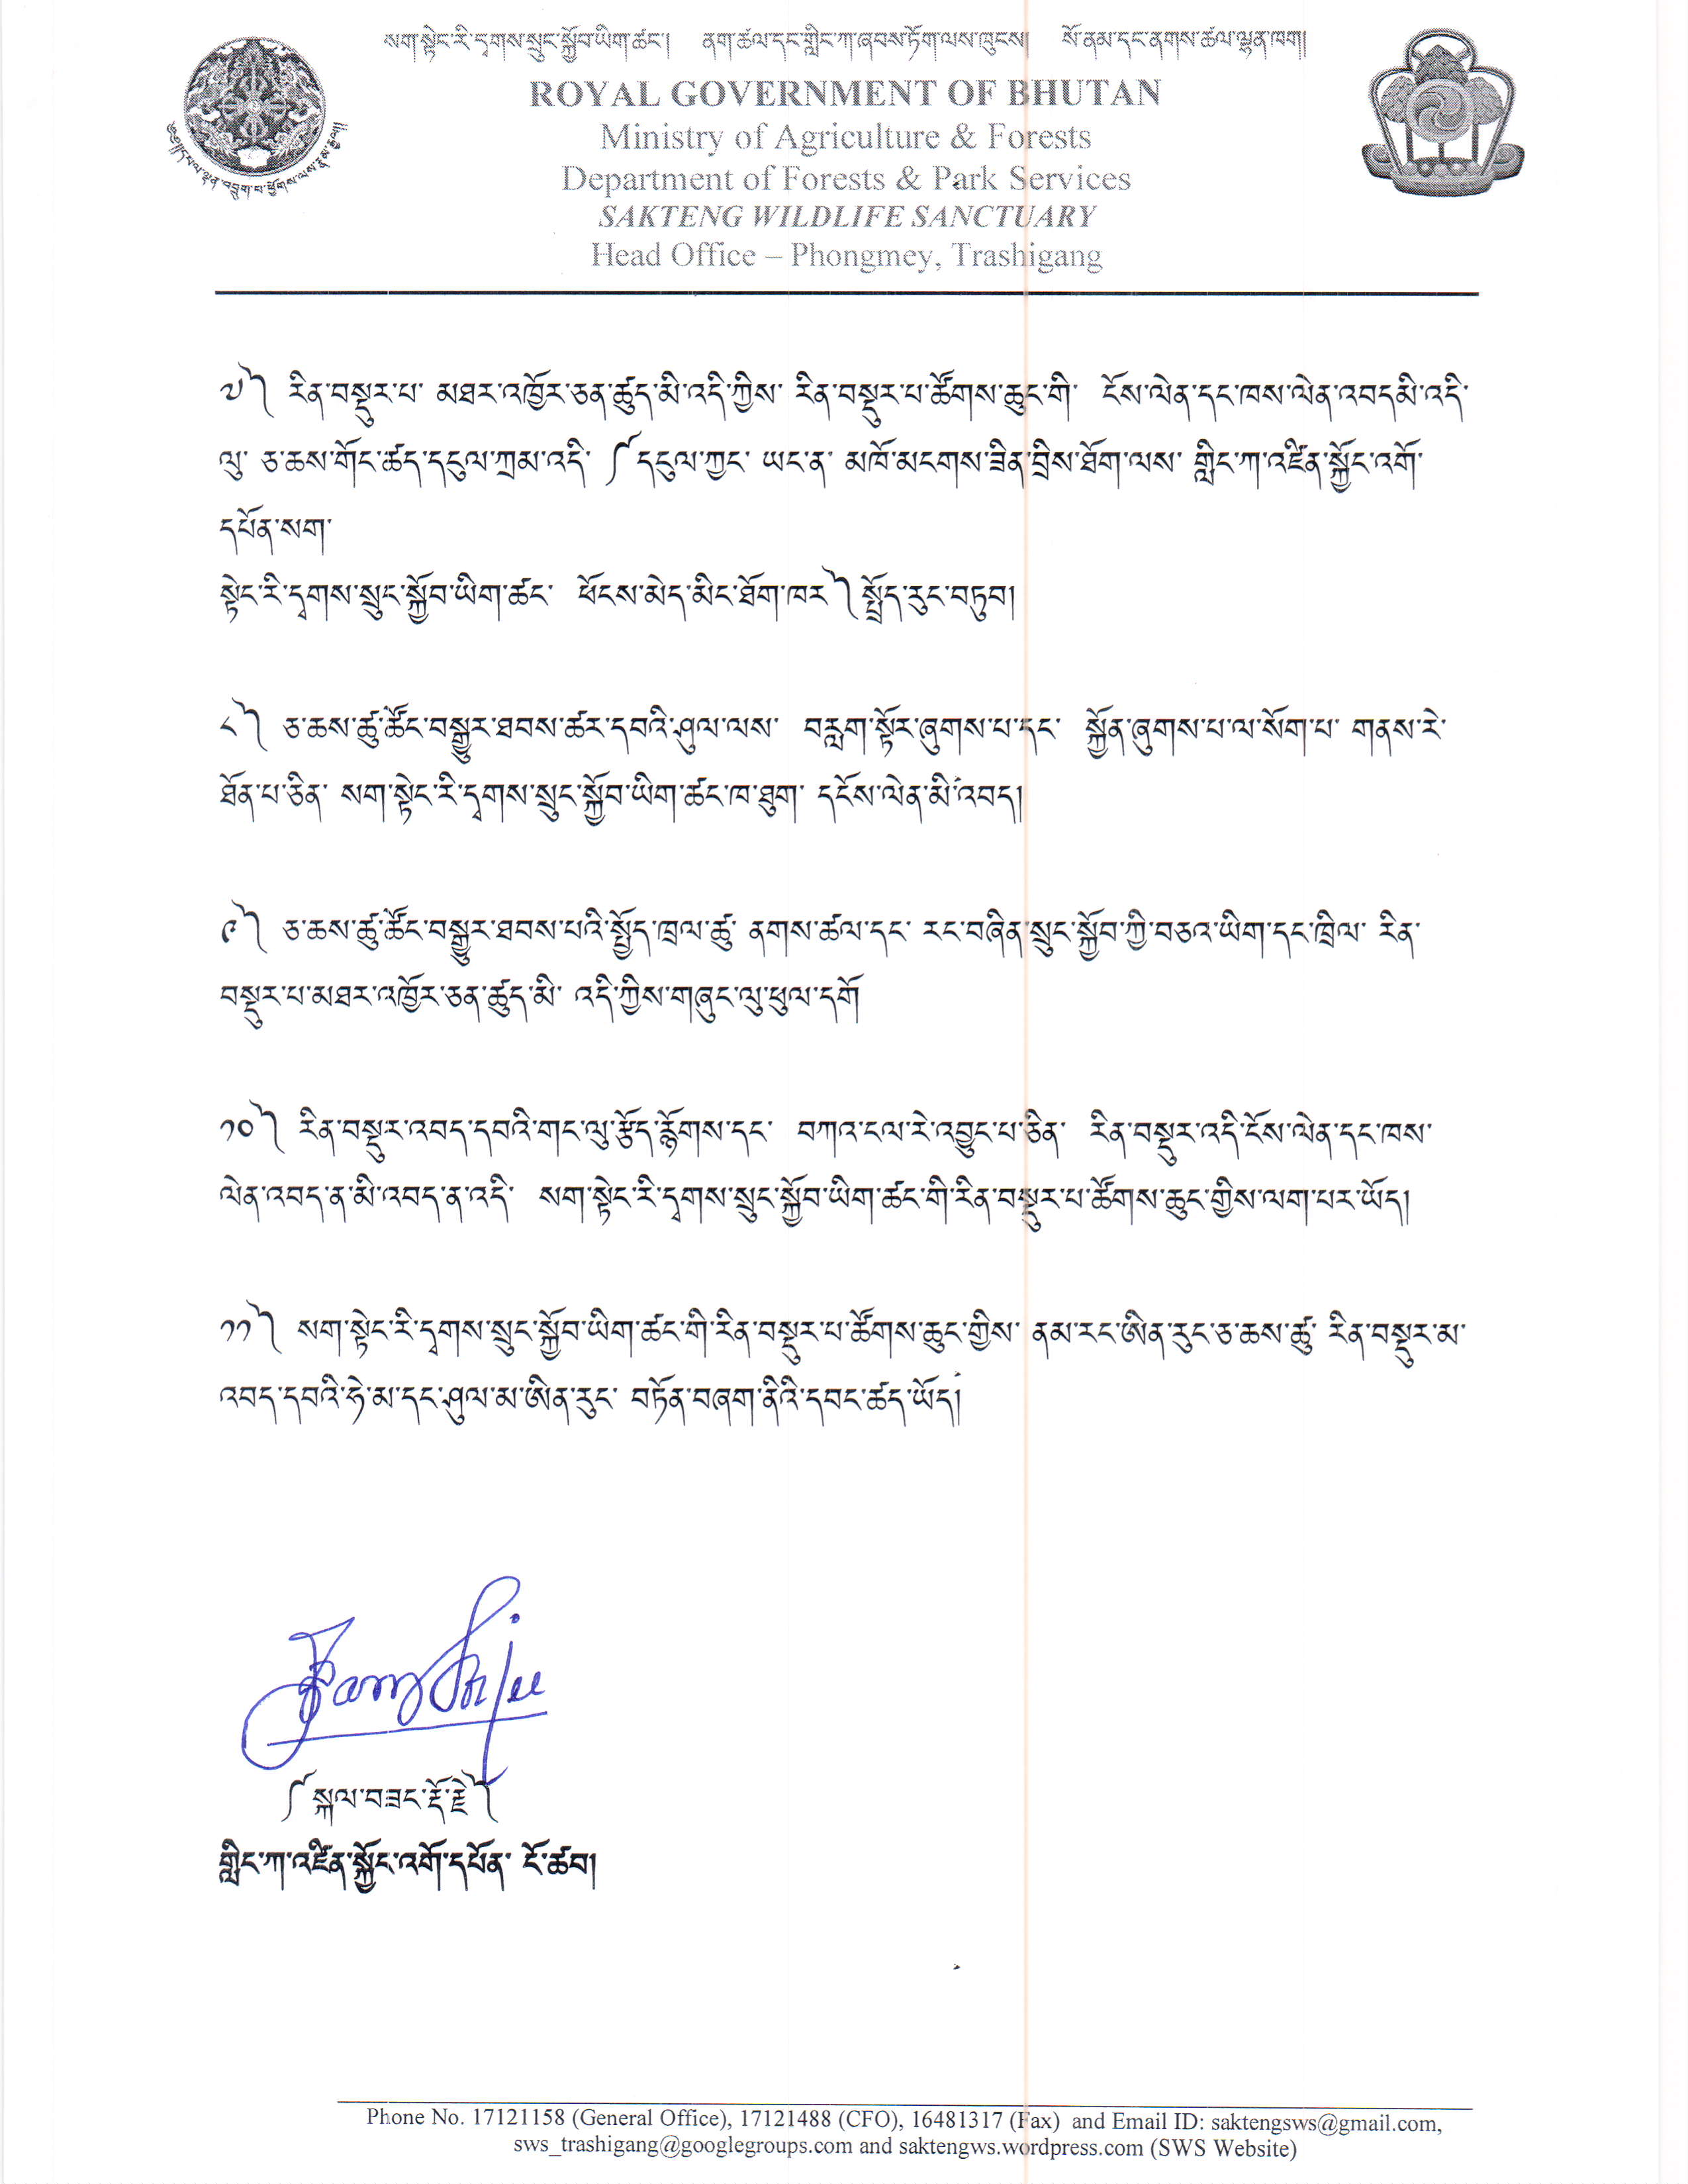 སག་སྟེང་རི་དྭགས་སྲུང་སྐྱོབ་ཡིག་ཚང་། ནག་ཚལ་དང་གླིང་ཀ་ཞབས་ཏོག་ལས་ཁུངས། སོ་ནམ་དང་ནགས་ཚལ་ལྷན་ཁག།
ROYAL GOVERNMENT OF BHUTAN
Ministry of Agriculture & Forests
Department of Forests & Park Services
SAKTENG WILDLIFE SANCTUARY
Head Office – Phongmey, Trashigang
༧༽ རིན་བསྡུར་པ་ མཐར་འཁྱོར་ཅན་ཚུད་མི་འདི་ཀྱིས་ རིན་བསྡུར་པ་ཚོགས་ཆུང་གི་ ངོས་ལེན་དང་ཁས་ལེན་འབདམི་འདི་
ལུ་ ཅ་ཆས་གོང་ཚད་དངུལ་ཀྲམ་འདི་ ༼ དངུལ་ཀྱང་ ཡང་ན་ མཁོ་མངགས་ཟིན་བྲིས་ཐོག་ལས་ གླིང་ཀ་འཛིན་སྐྱོང་འགོ་
དཔོན་སག་
སྟེང་རི་དྭགས་སྲུང་སྐྱོབ་ཡིག་ཚང་ ཕོངས་མེད་མིང་ཐོག་ཁར ༽ སྤྲོད་རུང་བཏུབ།
༨༽ ཅ་ཆས་ཚུ་ཚོང་བསྒྱུར་ཐབས་ཚར་དབའི་ཤུལ་ལས་ བརླག་སྟོར་ཞུགས་པ་དང་ སྐྱོན་ཞུགས་པ་ལ་སོག་པ་ གནས་རེ་
ཐོན་པ་ཅིན་ སག་སྟེང་རི་དྭགས་སྲུང་སྐྱོབ་ཡིག་ཚང་ཁ་ཐུག་ དངོས་ལེན་མི་འབད།
༩༽ ཅ་ཆས་ཚུ་ཚོང་བསྒྱུར་ཐབས་པའི་སྤྱོད་ཁྲལ་ཚུ་ ནགས་ཚལ་དང་ རང་བཞིན་སྲུང་སྐྱོབ་ཀྱི་བཅའ་ཡིག་དང་ཁྲིལ་ རིན་
བསྡུར་པ་མཐར་འཁྱོར་ཅན་ཚུད་མི་ འདི་ཀྱིས་གཞུང་ལུ་ཕུལ་དགོ
༡༠༽ རིན་བསྡུར་འབད་དབའི་གང་ལུ་རྩོད་རྙོགས་དང་ བཀའ་ངལ་རེ་འབྱུང་པ་ཅིན་ རིན་བསྡུར་འདི་ངོས་ལེན་དང་ཁས་
ལེན་འབད་ན་མི་འབད་ན་འདི་ སག་སྟེང་རི་དྭགས་སྲུང་སྐྱོབ་ཡིག་ཚང་གི་རིན་བསྡུར་པ་ཚོགས་ཆུང་གྱིས་ལག་པར་ཡོད།
༡༡༽ སག་སྟེང་རི་དྭགས་སྲུང་སྐྱོབ་ཡིག་ཚང་གི་རིན་བསྡུར་པ་ཚོགས་ཆུང་གྱིས་ ནམ་རང་ཨིན་རུང་ཅ་ཆས་ཚུ་ རིན་བསྡུར་མ་
འབད་དབའི་ཧེ་མ་དང་ཤུལ་མ་ཨིན་རུང་ བཏོན་བཞག་ནིའི་དབང་ཚད་ཡོད།
༼ སྐལ་བཟང་རྡོ་རྗེ ༽
གླིང་ཀ་འཛིན་སྐྱོང་འགོ་དཔོན་ ངོ་ཚབ།
Phone No. 17121158 (General Office), 17121488 (CFO), 16481317 (Fax) and Email ID: saktengsws@gmail.com,
sws_trashigang@googlegroups.com and saktengws.wordpress.com (SWS Website)